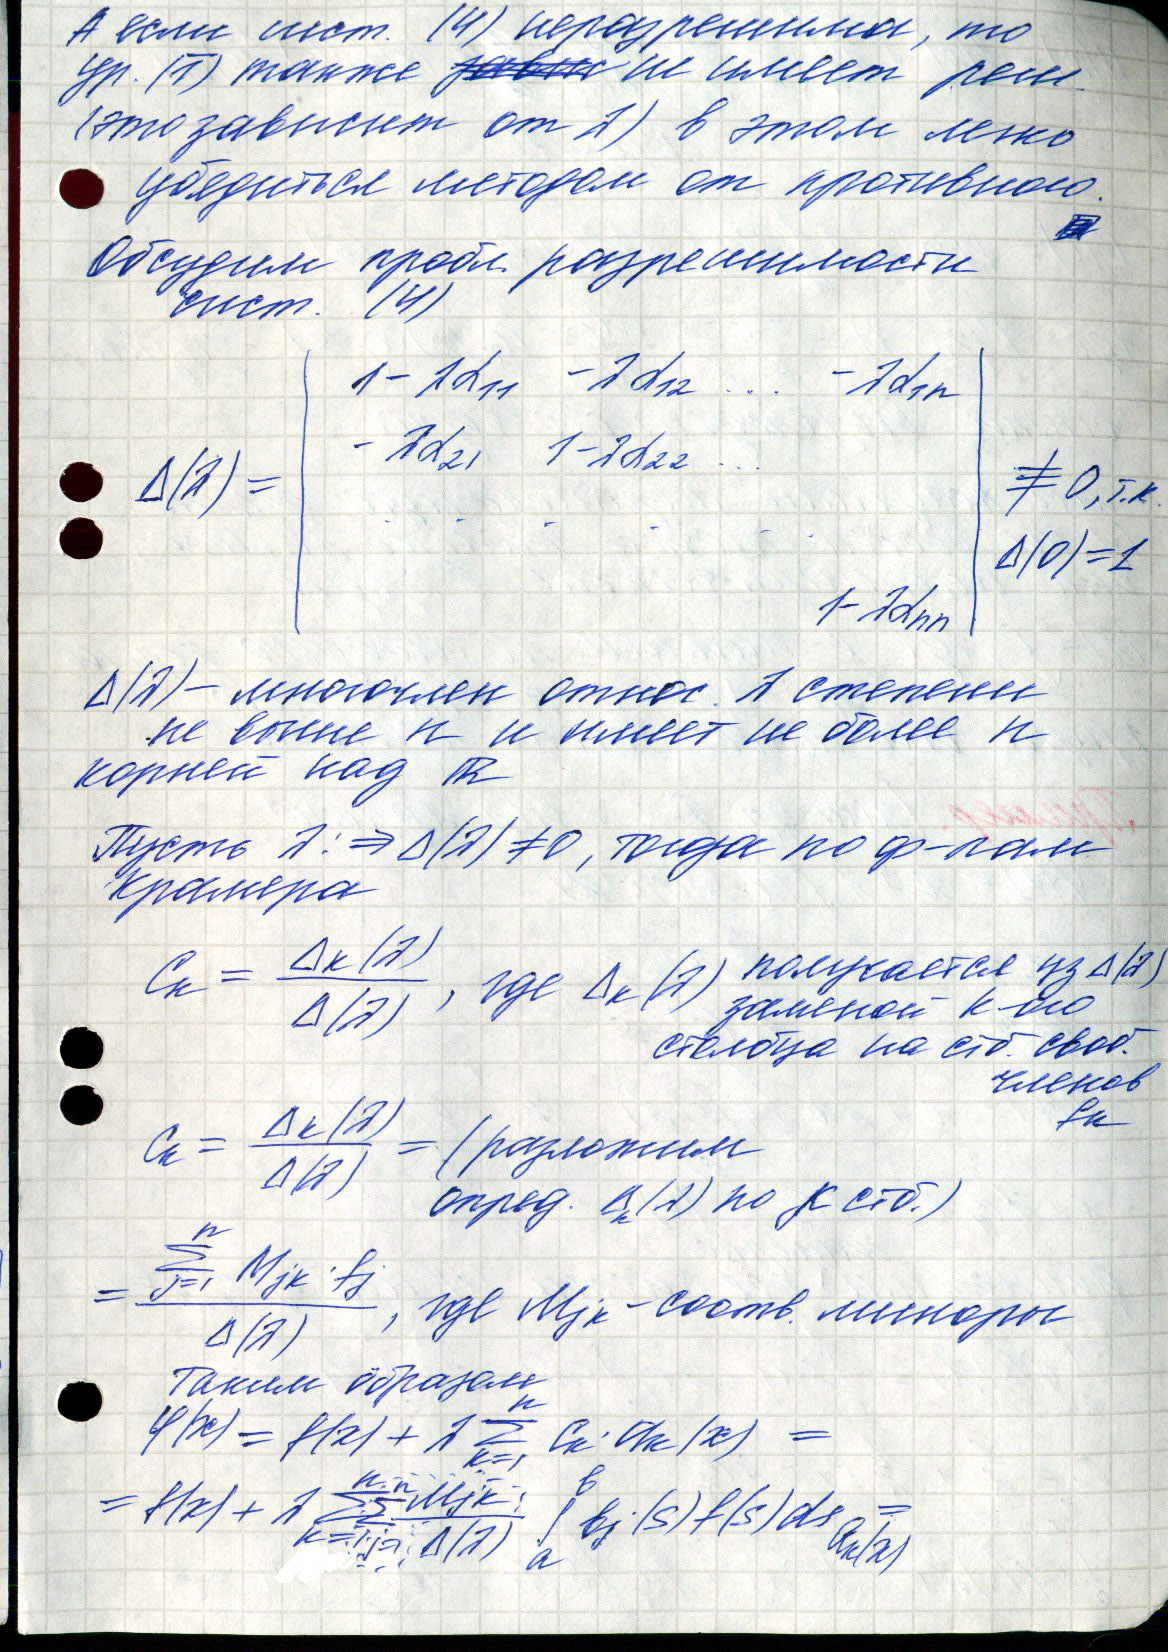 А если сист. (4) неразрешима, то
ур. (1) также не имеет реш.
(это зависит от λ) в этом легко
убедиться методом от противного.
Обсудим пробл. разрешимости
сист. (4)
1-λα₁₁ -λα₁₂ ... -λα₁ₙ
-λα₂₁ 1-λα₂₂ ...
Δ(λ) = ≠ 0, т.к.
Δ(0)=1
1-λαₙₙ
Δ(λ) - многочлен относ. λ степени
не выше n и имеет не более n
корней над ℝ
Пусть λ: ⇒ Δ(λ) ≠ 0, тогда по ф-лам
Крамера
Cₖ = Δₖ(λ) / Δ(λ), где Δₖ(λ) получается из Δ(λ)
заменой к-ого
столбца на стб. своб.
членов
fₖ
Cₖ = Δₖ(λ) / Δ(λ) = (разложим
опред. Δₖ(λ) по к стб.)
= ∑ⁿⱼ₌₁ Mⱼₖ · fⱼ / Δ(λ), где Mⱼₖ - соотв. миноры
Таким образом
φ(x) = f(x) + λ ∑ⁿₖ₌₁ Cₖ · aₖ(x) =
= f(x) + λ ∑ⁿₖ₌₁ ∑ⁿⱼ₌₁ Mⱼₖ / Δ(λ) ∫ₐᵇ bⱼ(s) f(s) ds aₖ(x) =